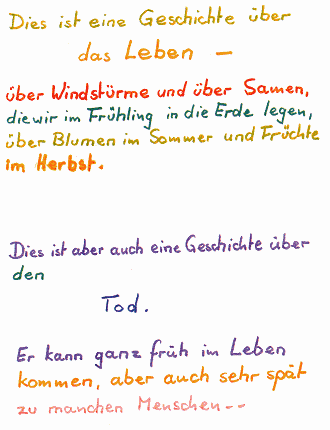 Dies ist eine Geschichte über
das Leben —
über Windstürme und über Samen,
die wir im Frühling in die Erde legen,
über Blumen im Sommer und Früchte
im Herbst.
Dies ist aber auch eine Geschichte über
den
Tod.
Er kann ganz früh im Leben
kommen, aber auch sehr spät
zu manchen Menschen--